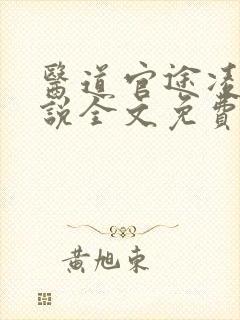 醫道官途凌
說全文免費
黃旭東